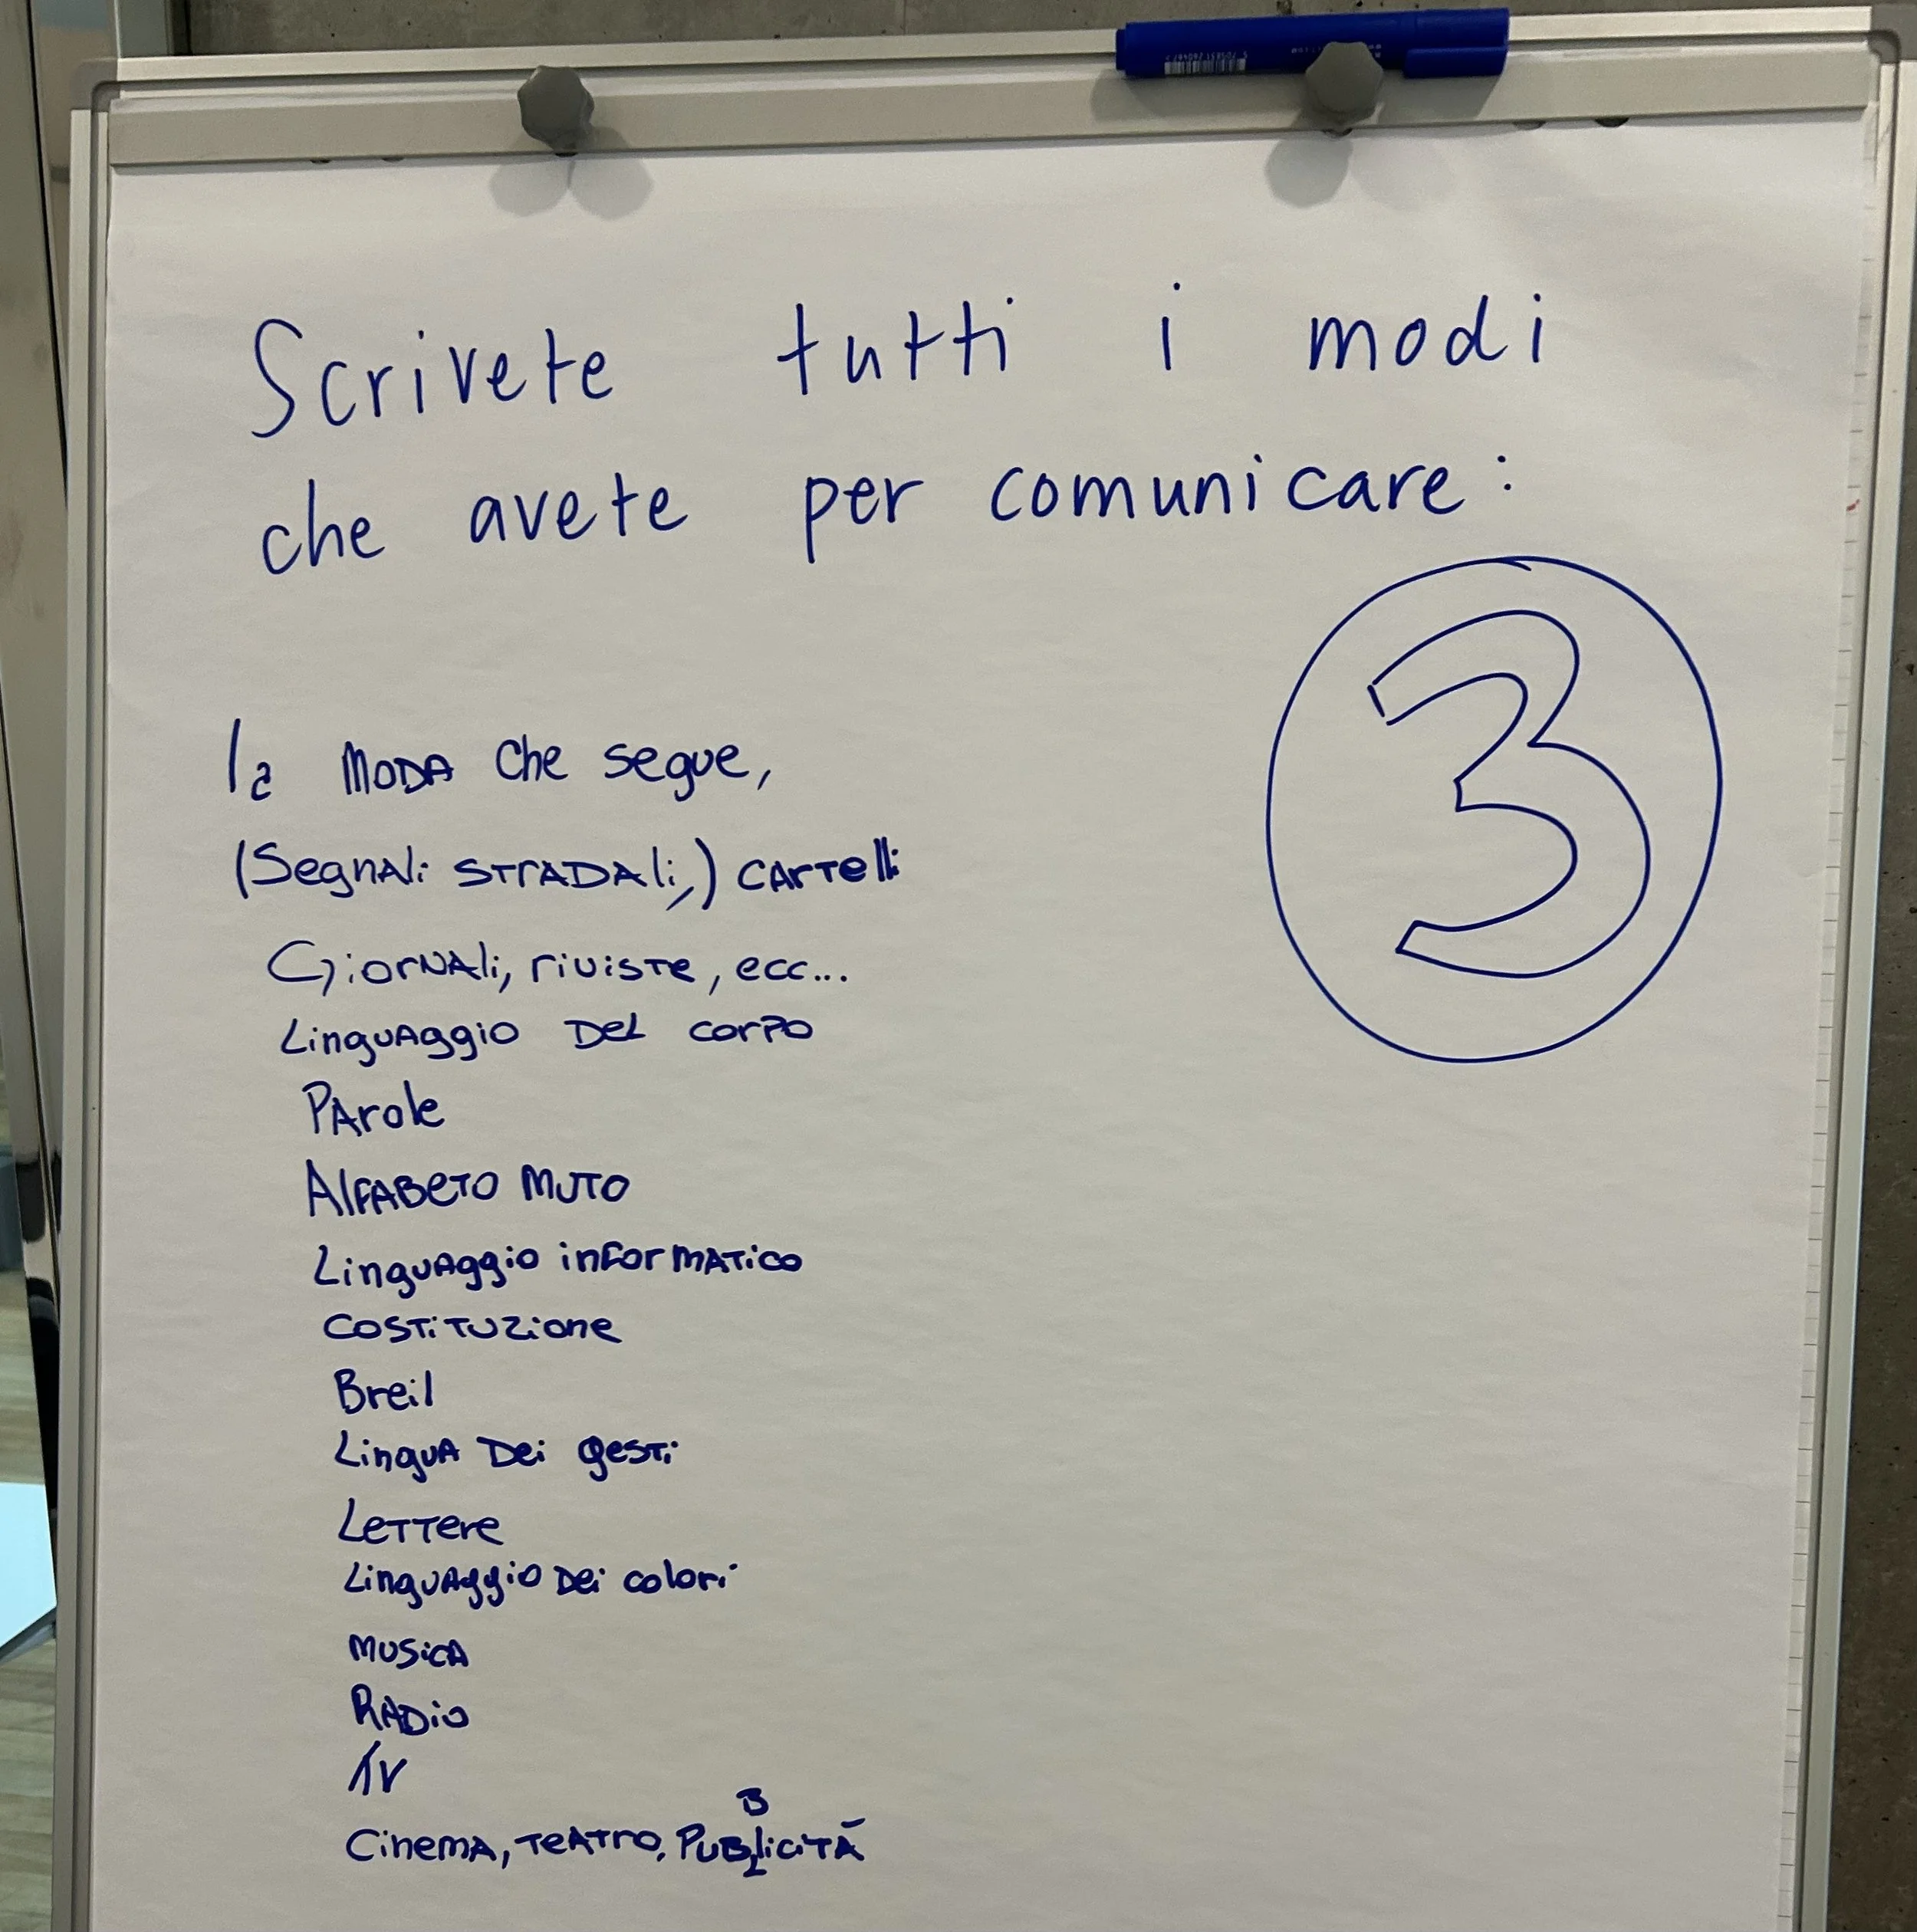 Scrivete tutti i modi
che avete per comunicare:
3
la MODA che segue,
(Segnali STRADALi,) CARTELLi
GiorNALi, riviste, ecc...
Linguaggio DEL corpo
PArole
ALFABETO MUTO
Linguaggio informatico
COSTITUZIONE
Breil
Lingua Dei gesti
LETTERE
Linguaggio Dei colori
MUSICA
RADio
TV
Cinema, TEATRO, PUBBLICITÀ